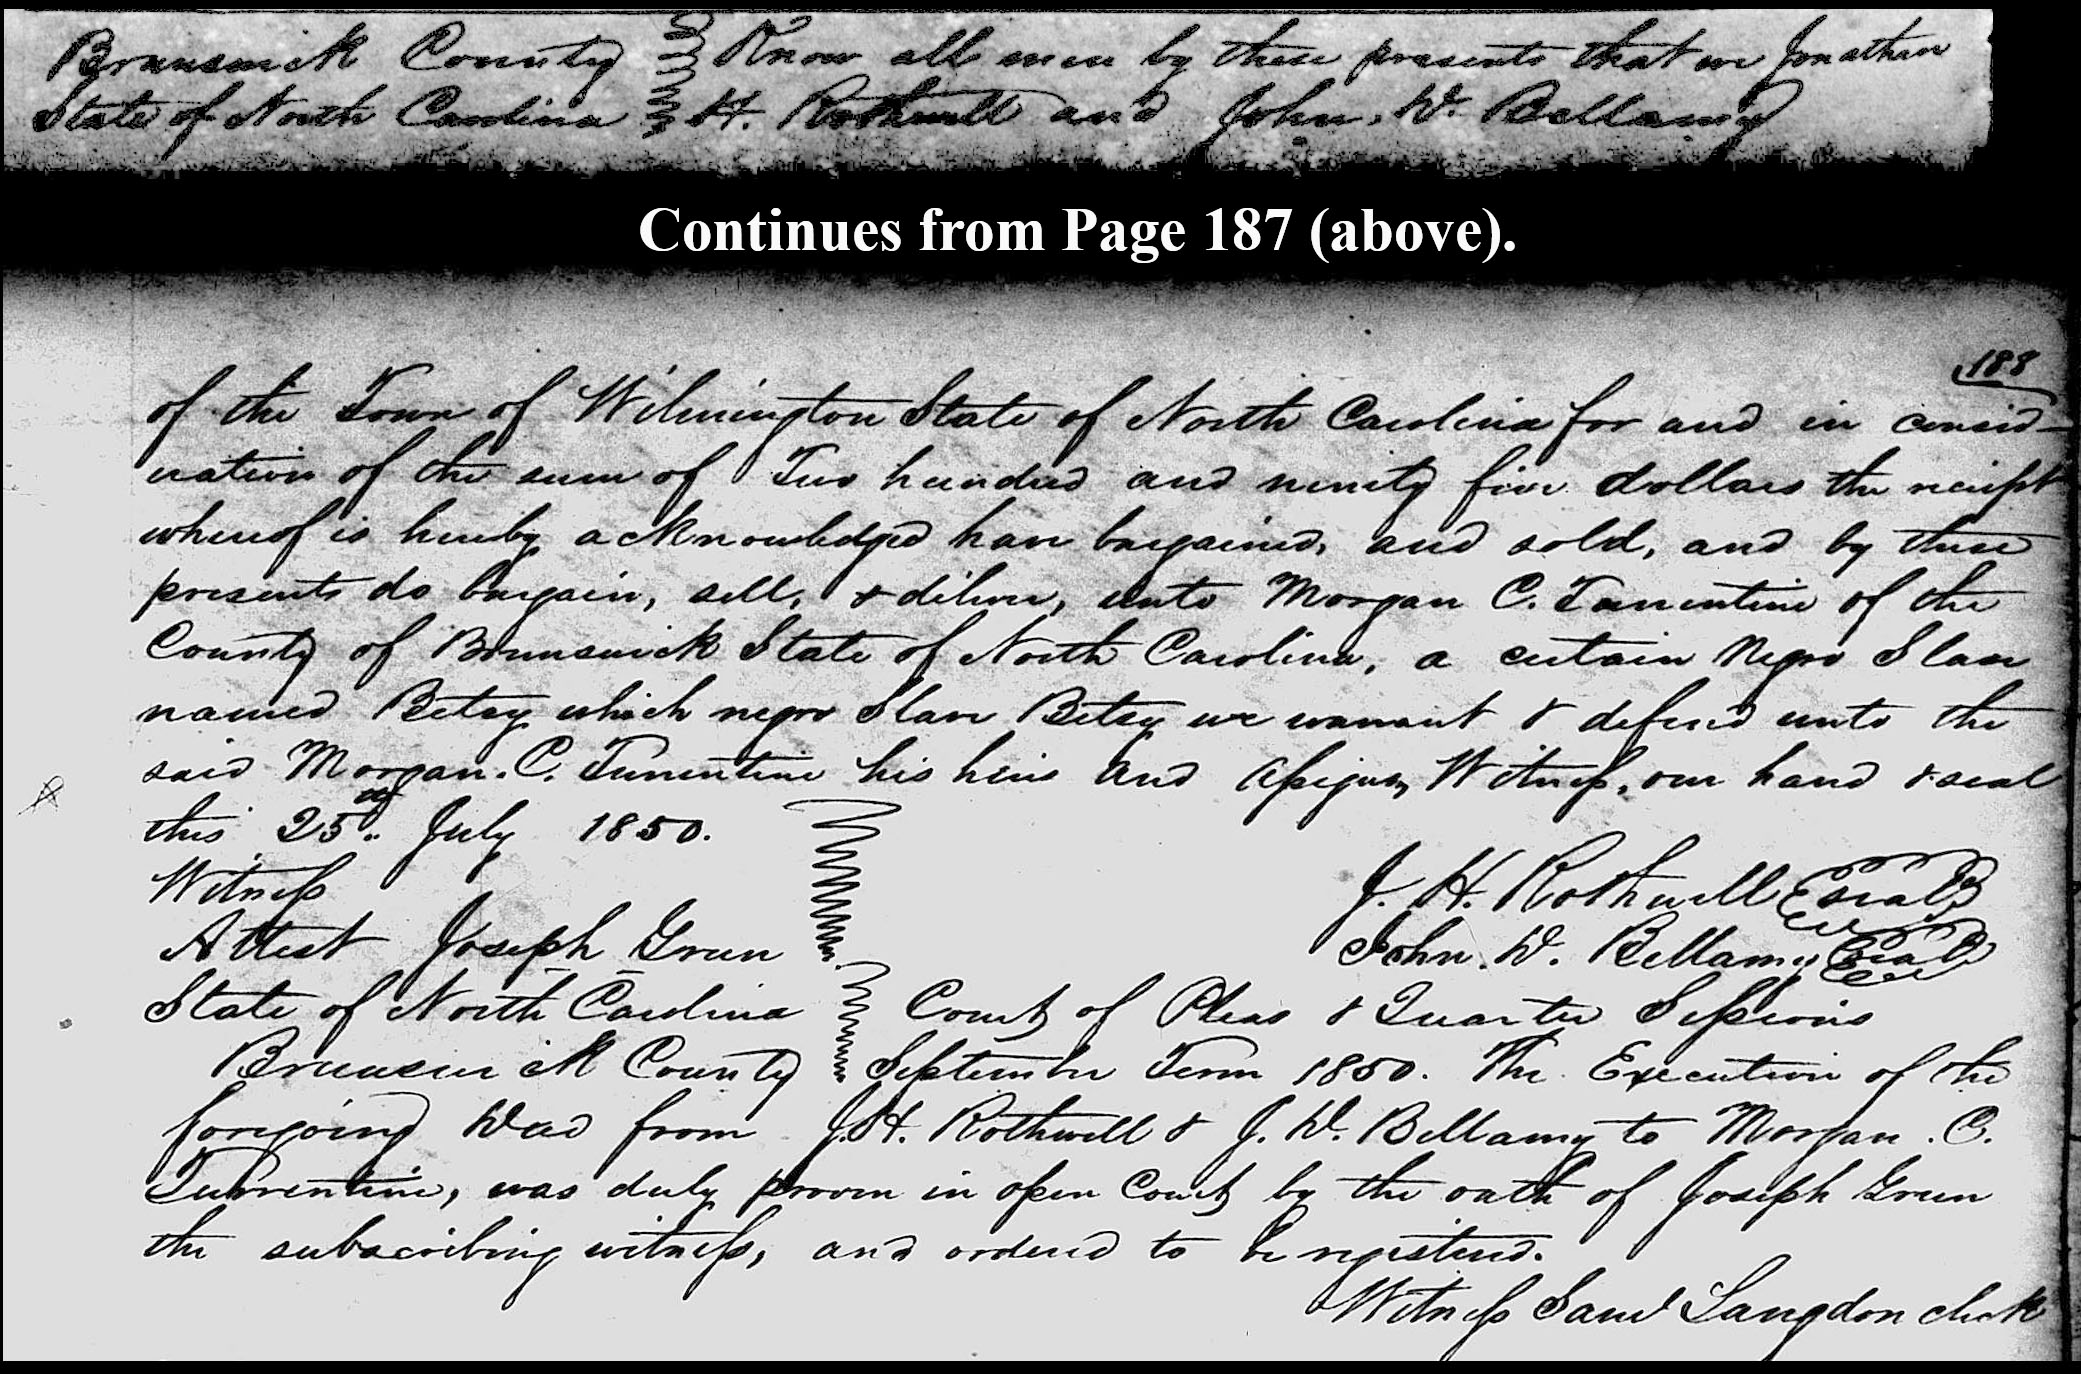 Brunswick County Know all men by these presents that we Jonathan
State of North Carolina H. Rothwell and John. W. Bellamy
Continues from Page 187 (above).
188
of the Town of Wilmington State of North Carolina for and in consid-
eration of the sum of Two hundred and ninety five dollars the reciept
whereof is hereby acknowledged have bargained, and sold, and by these
presents do bargain, sell, & deliver, unto Morgan C. Turrentine of the
County of Brunswick State of North Carolina, a certain Negro Slave
named Betsy which negro Slave Betsy we warrant & defend unto the
said Morgan. C. Turrentine his heirs and assigns, Witness, our hand & seal
this 25th July 1850.
Witness
J. H. Rothwell Seal
Attest Joseph Green
John. W. Bellamy Seal
State of North Carolina Court of Pleas & Quarter Sessions
Brunswick County September Term 1850. The Execution of the
foregoing Deed from J. H. Rothwell & J. W. Bellamy to Morgan. C.
Turrentine, was duly proven in open Court by the oath of Joseph Green
the subscribing witness, and ordered to be registered.
Witness Saml Langdon clerk